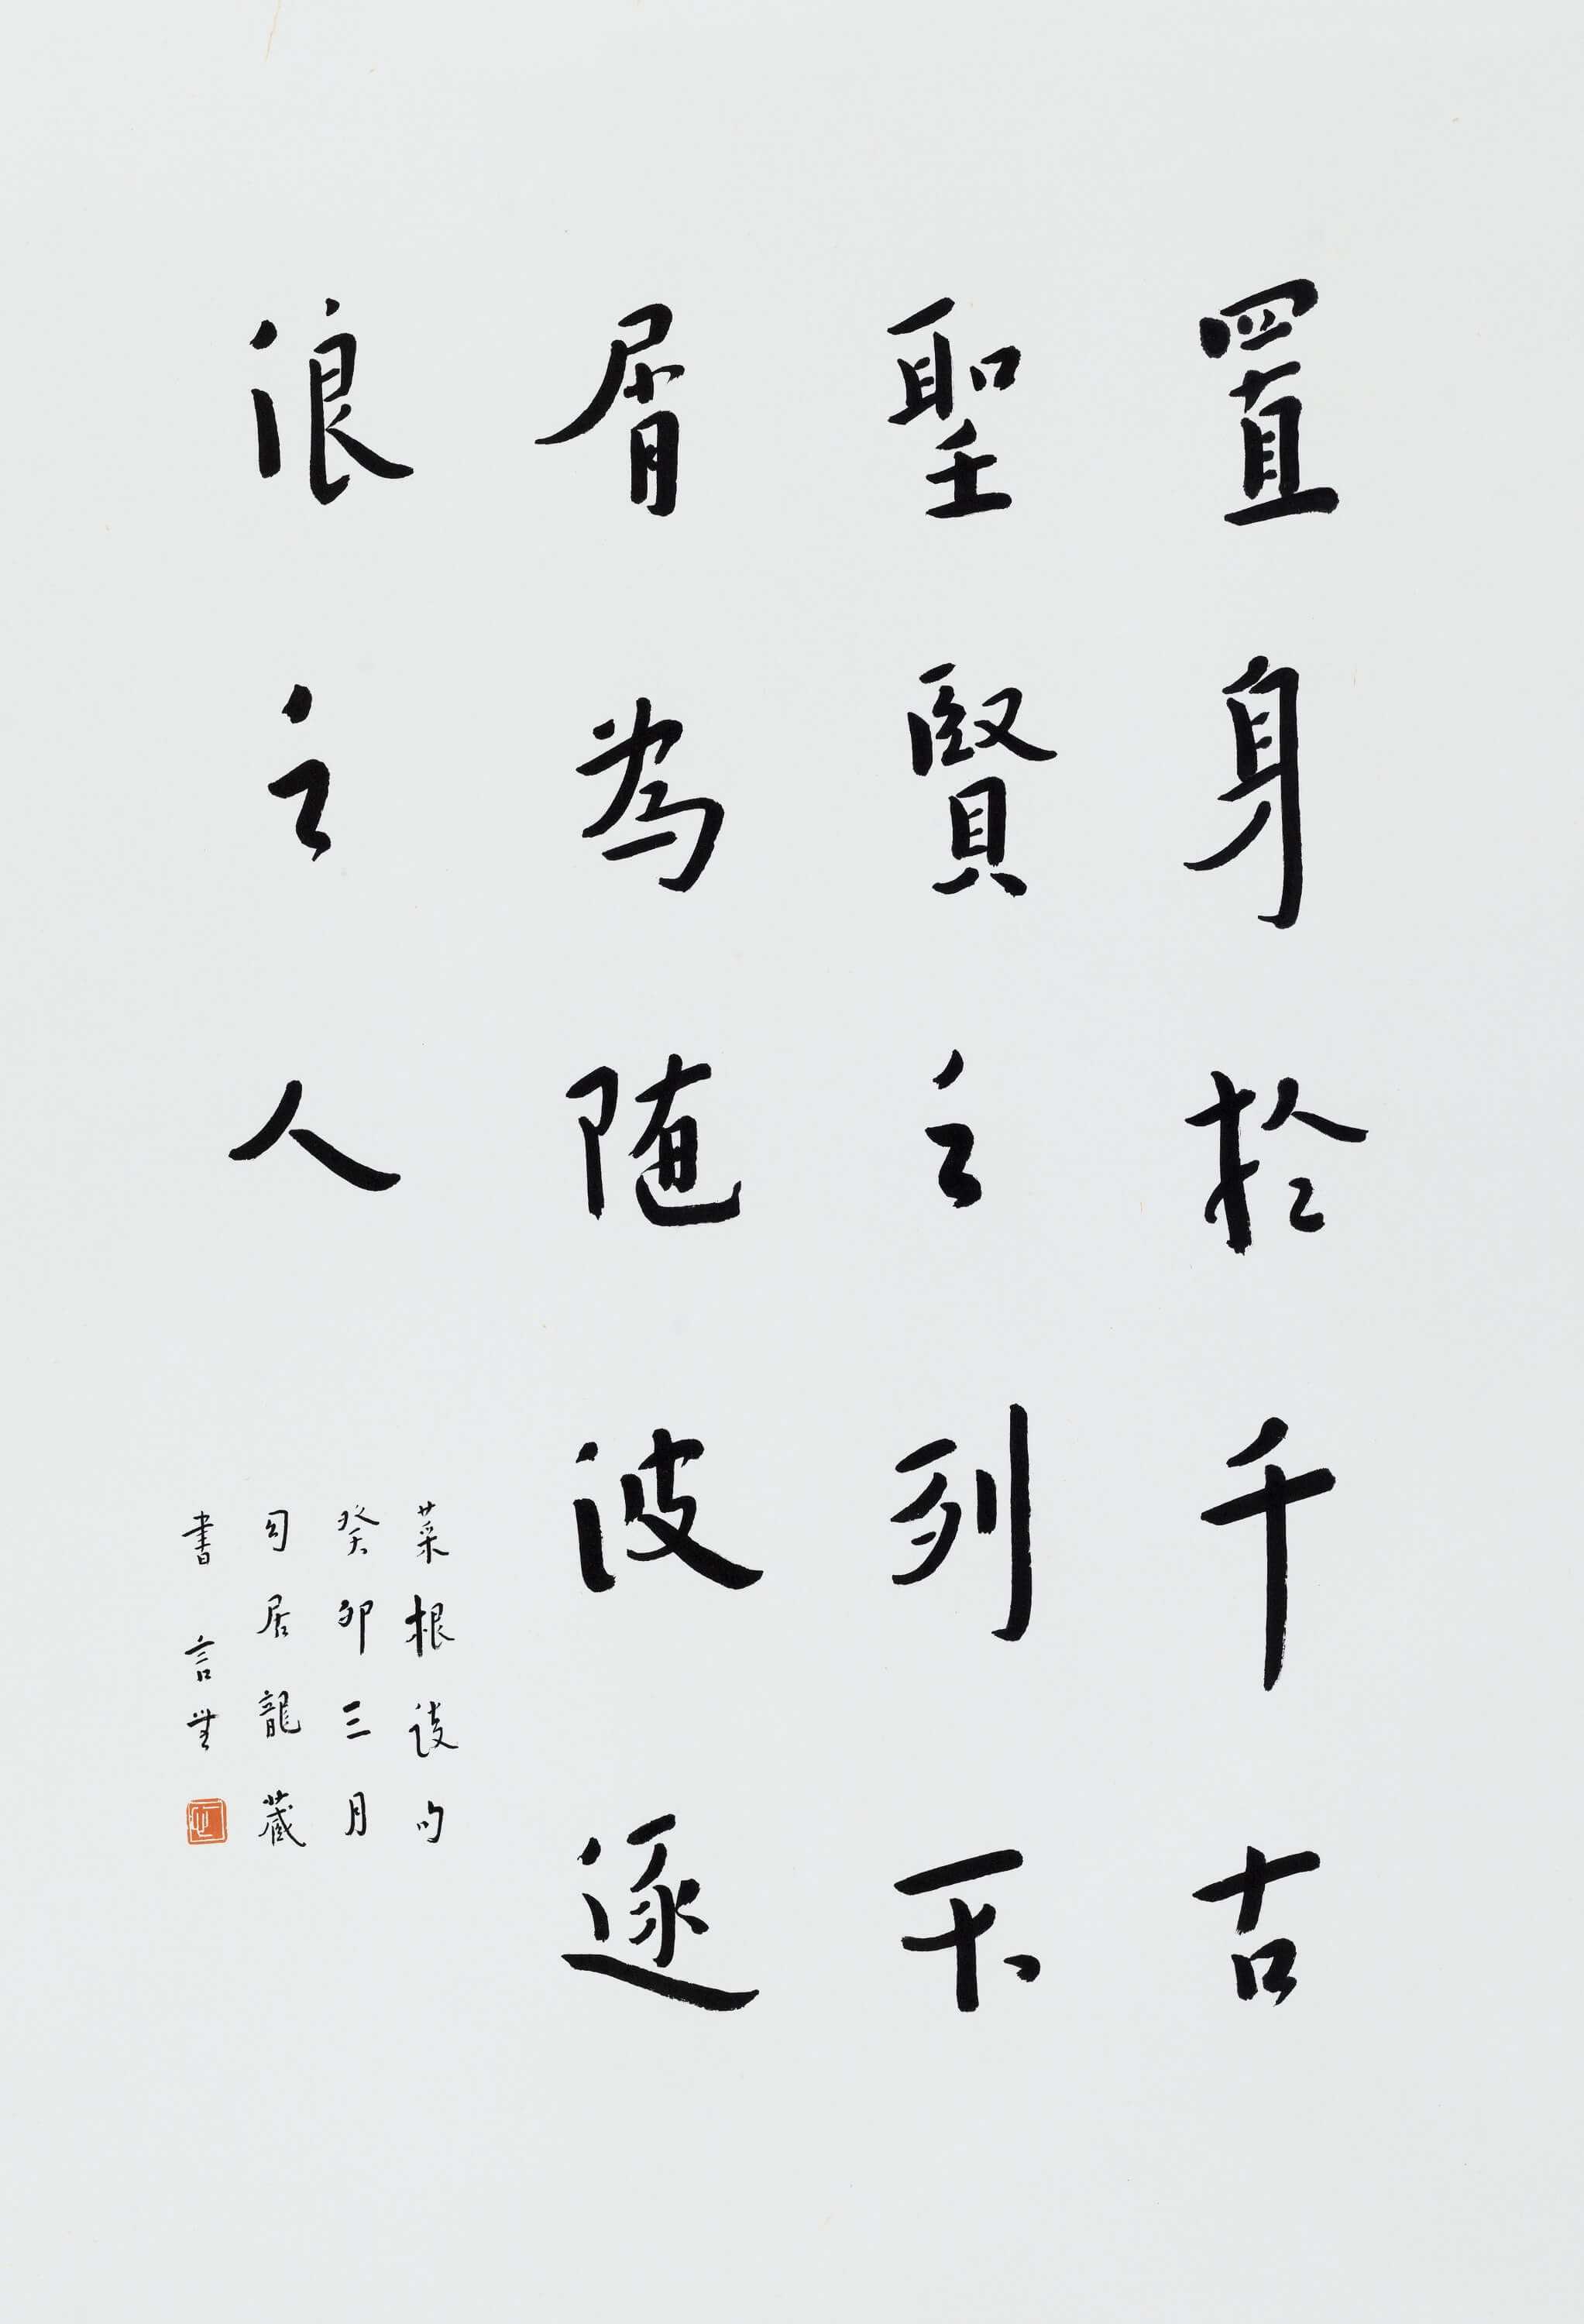 置身於千古
聖賢之列不
屑為随波逐
浪之人
菜根談句
癸卯三月
居龍藏
書 言無